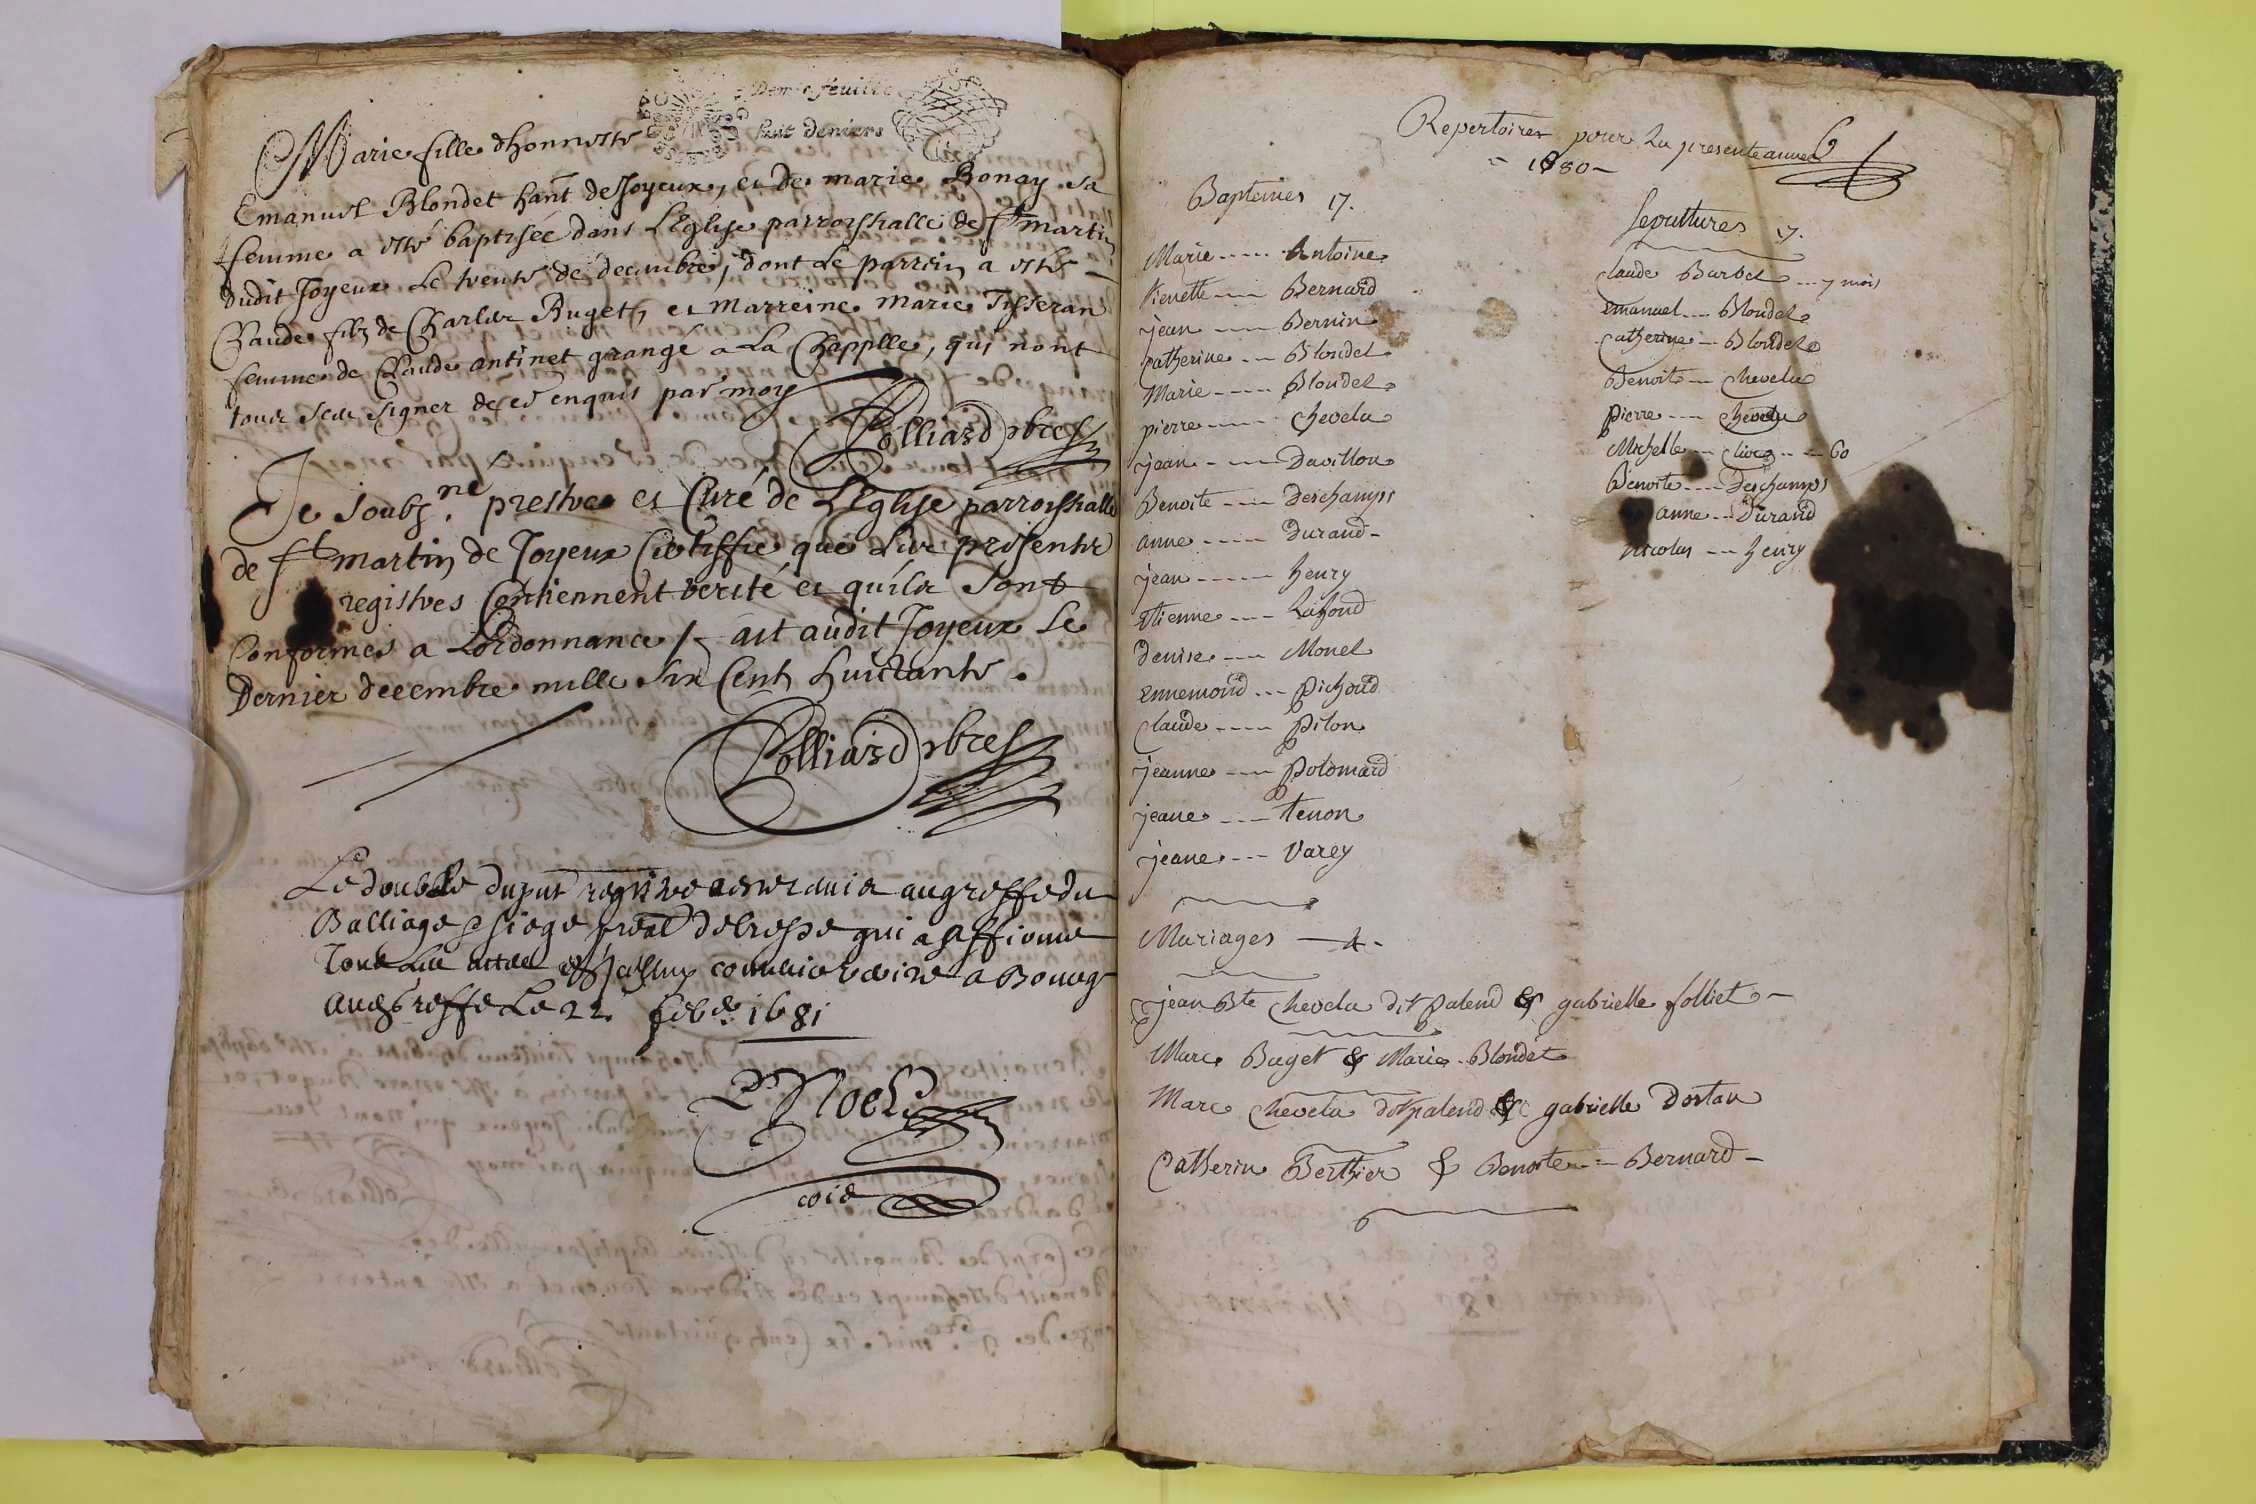 Demie feuille
huit deniers
Marie fille dhonneste
Emanuel Blondet hañt de Joyeux, et de marie Bonay sa
femme a este baptisée dans LEglise parroissialle de St martin
dudit Joyeux Le trente de decembre, dont Le parrein a esté
Claude filz de Charles Buget, et Marreine Marie Tisseran
femme de Claude antinet grange a La Chappelle, qui nont
sceu signer de ce enquis par moy
Polliard pbre
Je soubz.né prestre et Curé de LEglise parroissialle
de St martin de Joyeux Certiffie que Les presents
registres Contiennent verité et quils sont
Conformes a Lordonnance fait audit Joyeux Le
Dernier decembre mille six Cent huictante.
Polliard pbre
Le double du pnt registre au greffe du
Balliage siege de bresse qui a
a Bourg
au greffe Le 22. feb. 1681
Noel
Repertoire pour La presente année
- 1680 -
Baptemes 17.
Marie ---- Antoine
Pierrette --- Bernard
jean ---- Bernin
Catherine --- Blondel
Marie ---- Blondel
pierre ---- Chevelu
jean ---- Davillon
Benoite ---- Deschamps
anne ---- Durand -
jean ---- henry
Etienne ---- Lafond
Denise ---- Monet
Ennemond --- Pichoud
Claude ---- Piton
jeanne ---- Polomard
jeane --- tenon
jeane --- Varey
Mariages — 4 -
jean Bte Chevelu dit palend & gabrielle folliet -
Marc Buget & Marie Blondet
Marc Chevelu dit palend & gabrielle Dortan
Catherin Berthier & Benoite -- Bernard -
Sepultures
Claude Barbet --- 7 mois
Emanuel --- Blondel
Catherine -- Blondel
Benoit --- Chevelu
Pierre --- Chevelu
Michelle --- --- 60
Benoite --- Deschamps
anne -- Durand
Nicolas --- henry